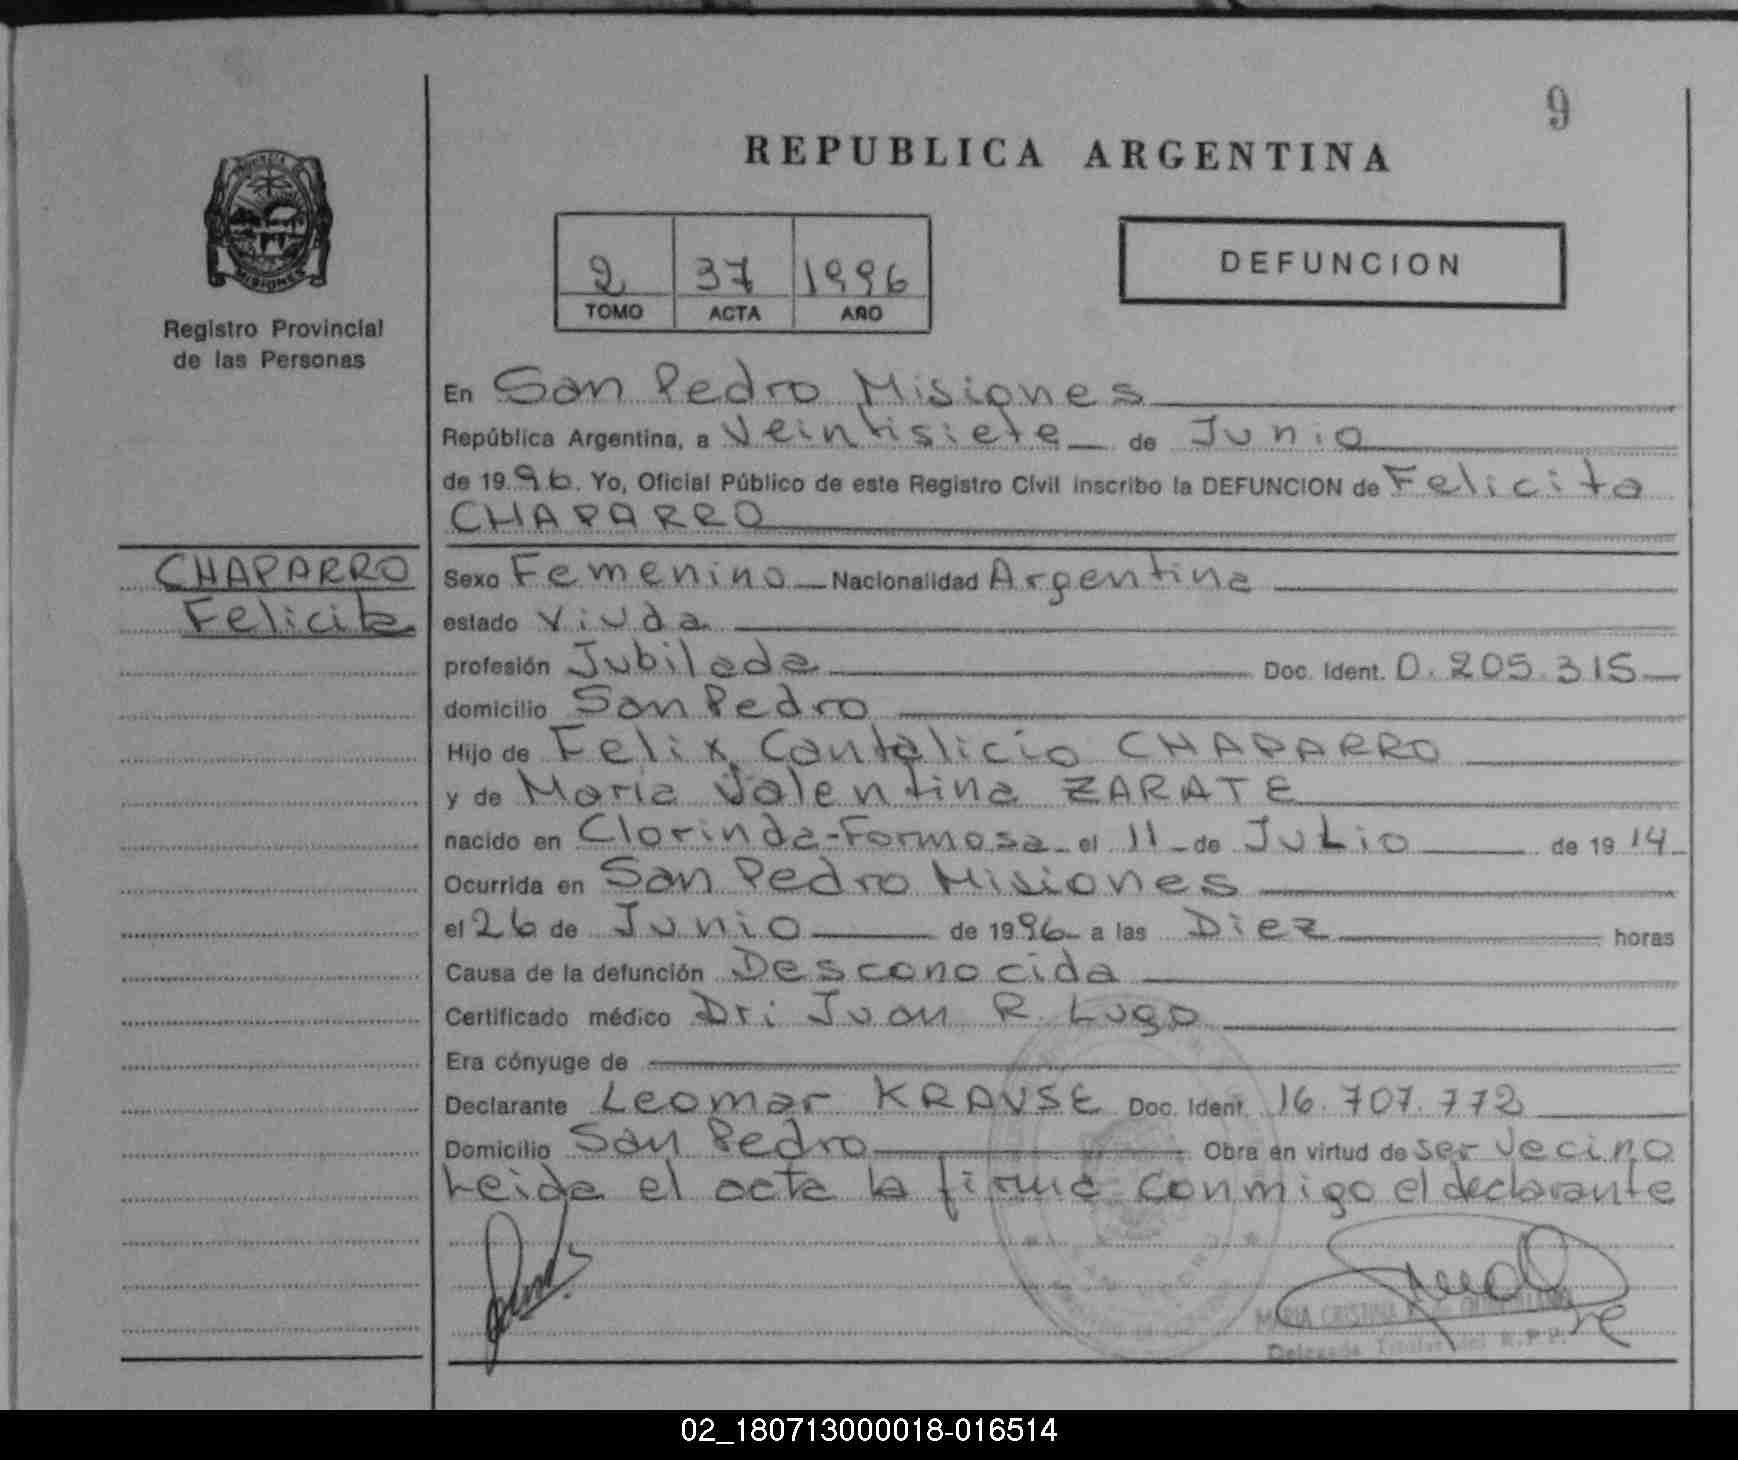 9
REPUBLICA ARGENTINA
MISIONES
Registro Provincial
de las Personas
2 37 1996
TOMO ACTA AÑO
DEFUNCION
En San Pedro Misiones
República Argentina, a Veintisiete de Junio
de 1996. Yo, Oficial Público de este Registro Civil inscribo la DEFUNCION de Felicita
CHAPARRO
CHAPARRO
Felicita
Sexo Femenino Nacionalidad Argentina
estado Viuda
profesión Jubilada Doc. Ident. 0.205.315
domicilio San Pedro
Hijo de Felix Cantalicio CHAPARRO
y de Maria Valentina ZARATE
nacido en Clorinda-Formosa el 11 de Julio de 1914
Ocurrida en San Pedro Misiones
el 26 de Junio de 1996 a las Diez horas
Causa de la defunción Desconocida
Certificado médico Dr: Juan R. Lugo
Era cónyuge de
Declarante Leomar KRAUSE Doc. Ident. 16.707.772
Domicilio San Pedro Obra en virtud de ser vecino
Leida el acta la firma conmigo el declarante
MARIA CRISTINA
Delegada Titular del R.P.P.
02_180713000018-016514